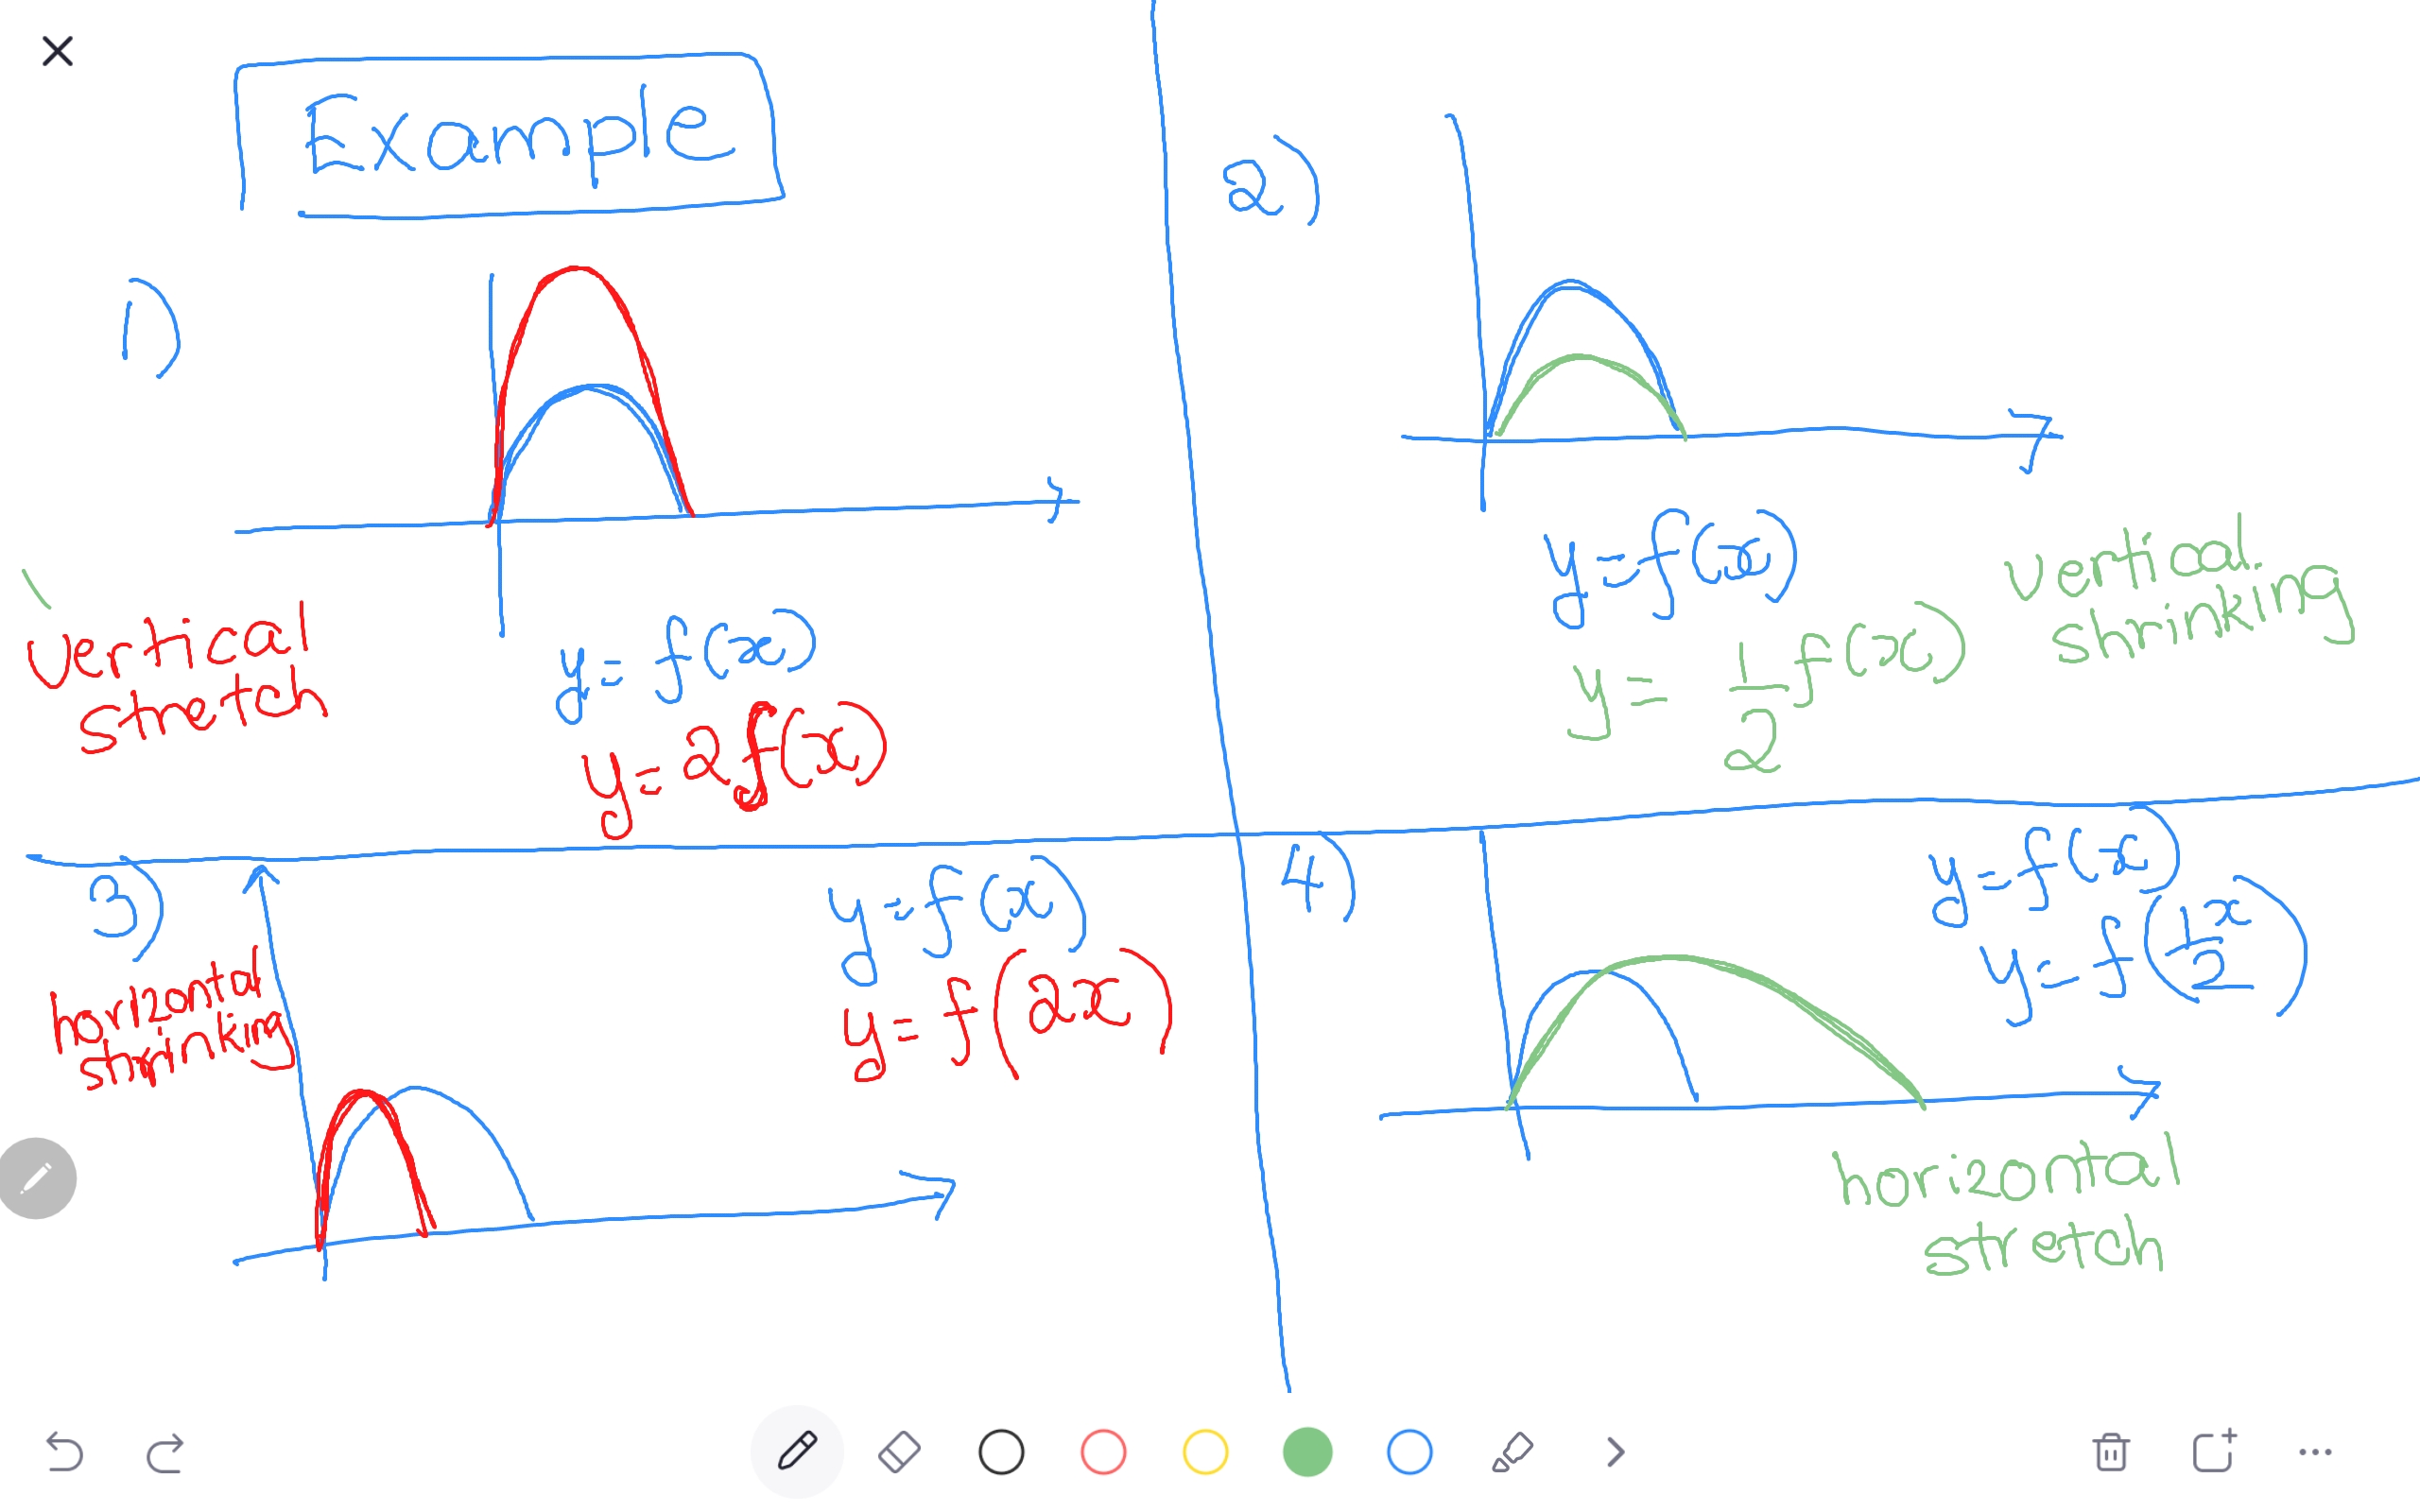 Example
1)
vertical
stretch
y = f(x)
y = 2f(x)
2)
y = f(x)
y = 1/2 f(x)
vertical
shrinking
3)
horizontal
shrinking
y = f(x)
y = f(2x)
4)
y = f(x)
y = f(1/2 x)
horizontal
stretch